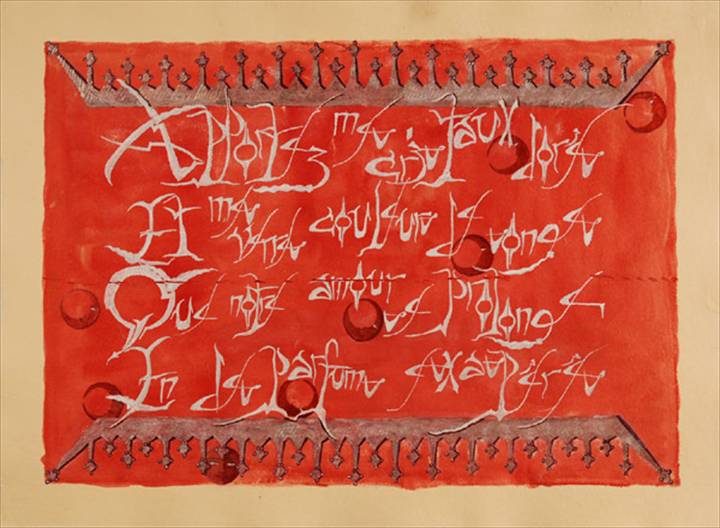 Apportez mes cristaux dorés
Et mes verres couleur de songe
Que notre amour se prolonge
En des parfums exaspérés